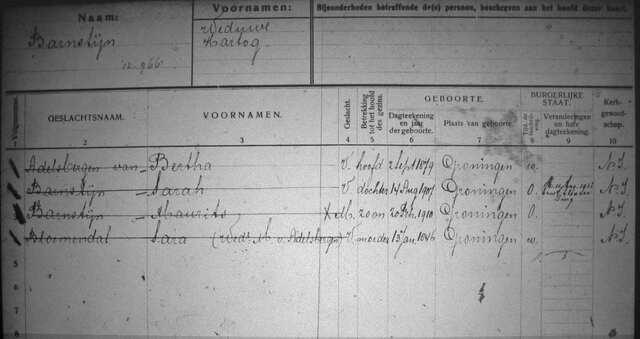 Naam:
Barnstijn
Voornamen:
Weduwe
Hartog
Bijzonderheden betreffende de(n) persoon, beschreven aan het hoofd dezer kaart.
GESLACHTSNAAM.
VOORNAMEN.
Geslacht.
Betrekking tot het hoofd des gezins.
GEBOORTE.
Dagteekening en jaar der geboorte.
Plaats van geboorte.
BURGERLIJKE STAAT.
Veranderingen en hare dagteekening.
Kerkgenootschap.
2 3 4 5 6 7 8 9 10
Adelsbergen van Bertha V. hoofd 2 Sept 1879 Groningen w. N.I.
Barnstijn Sarah V. dochter 14 Aug 1907 Groningen O. N.I.
Barnstijn Maurits M. zoon 20 Feb. 1910 Groningen O. N.I.
Bloemendal Sara (Wedr. M. v. Adelsbergen) V. moeder 13 Jan 1846 Groningen w. N.I.
5
6
7
8